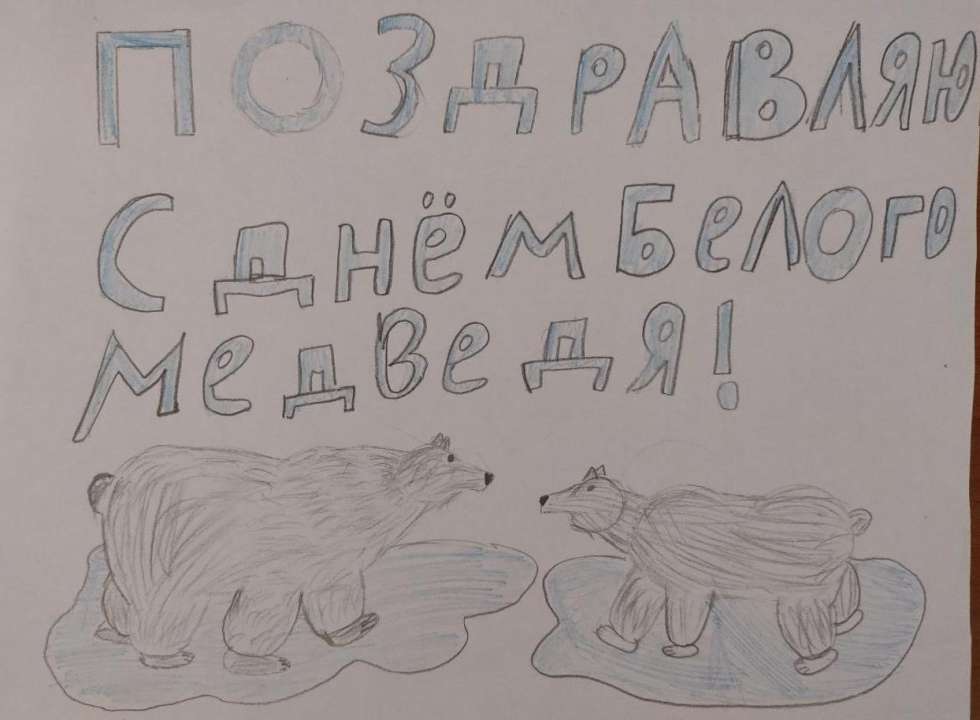 ПОЗДРАВЛЯЮ
С ДНЁМ БЕЛОГО
МЕДВЕДЯ!